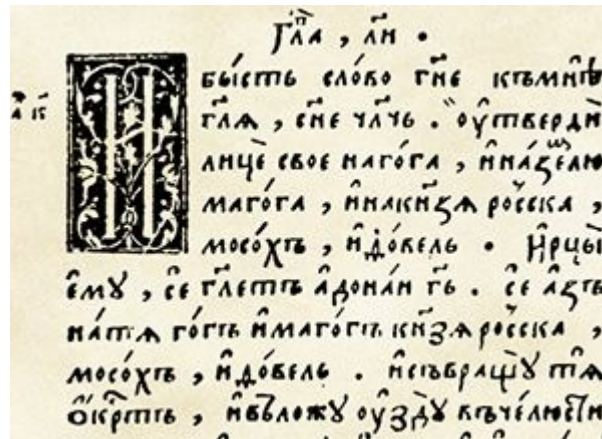 Гл҃а, ли҃.
И бы́сть сло́во гн҃е къмнѣ
гл҃ѧ, сн҃е чл҃чь. оу҆твердѝ
лицѐ свое нагѡ́га, и҆на́землю
маго́га, и҆накн҃зѧ ро́сска,
мосо́хъ, и҆до́вель. И҆рцы̀
є҆мꙋ, се҆ гл҃етъ а҆донаи гь҃. се҆ а҆зъ
на́тѧ го́гъ и҆маго́гъ кн҃зѧ ро́сска,
мосо́хъ, и҆до́вель. и҆съвращꙋ̀ тѧ̀
о҆́крⷭ҇тъ, и҆въложꙋ̀ оу҆здꙋ̀ въче́люсти